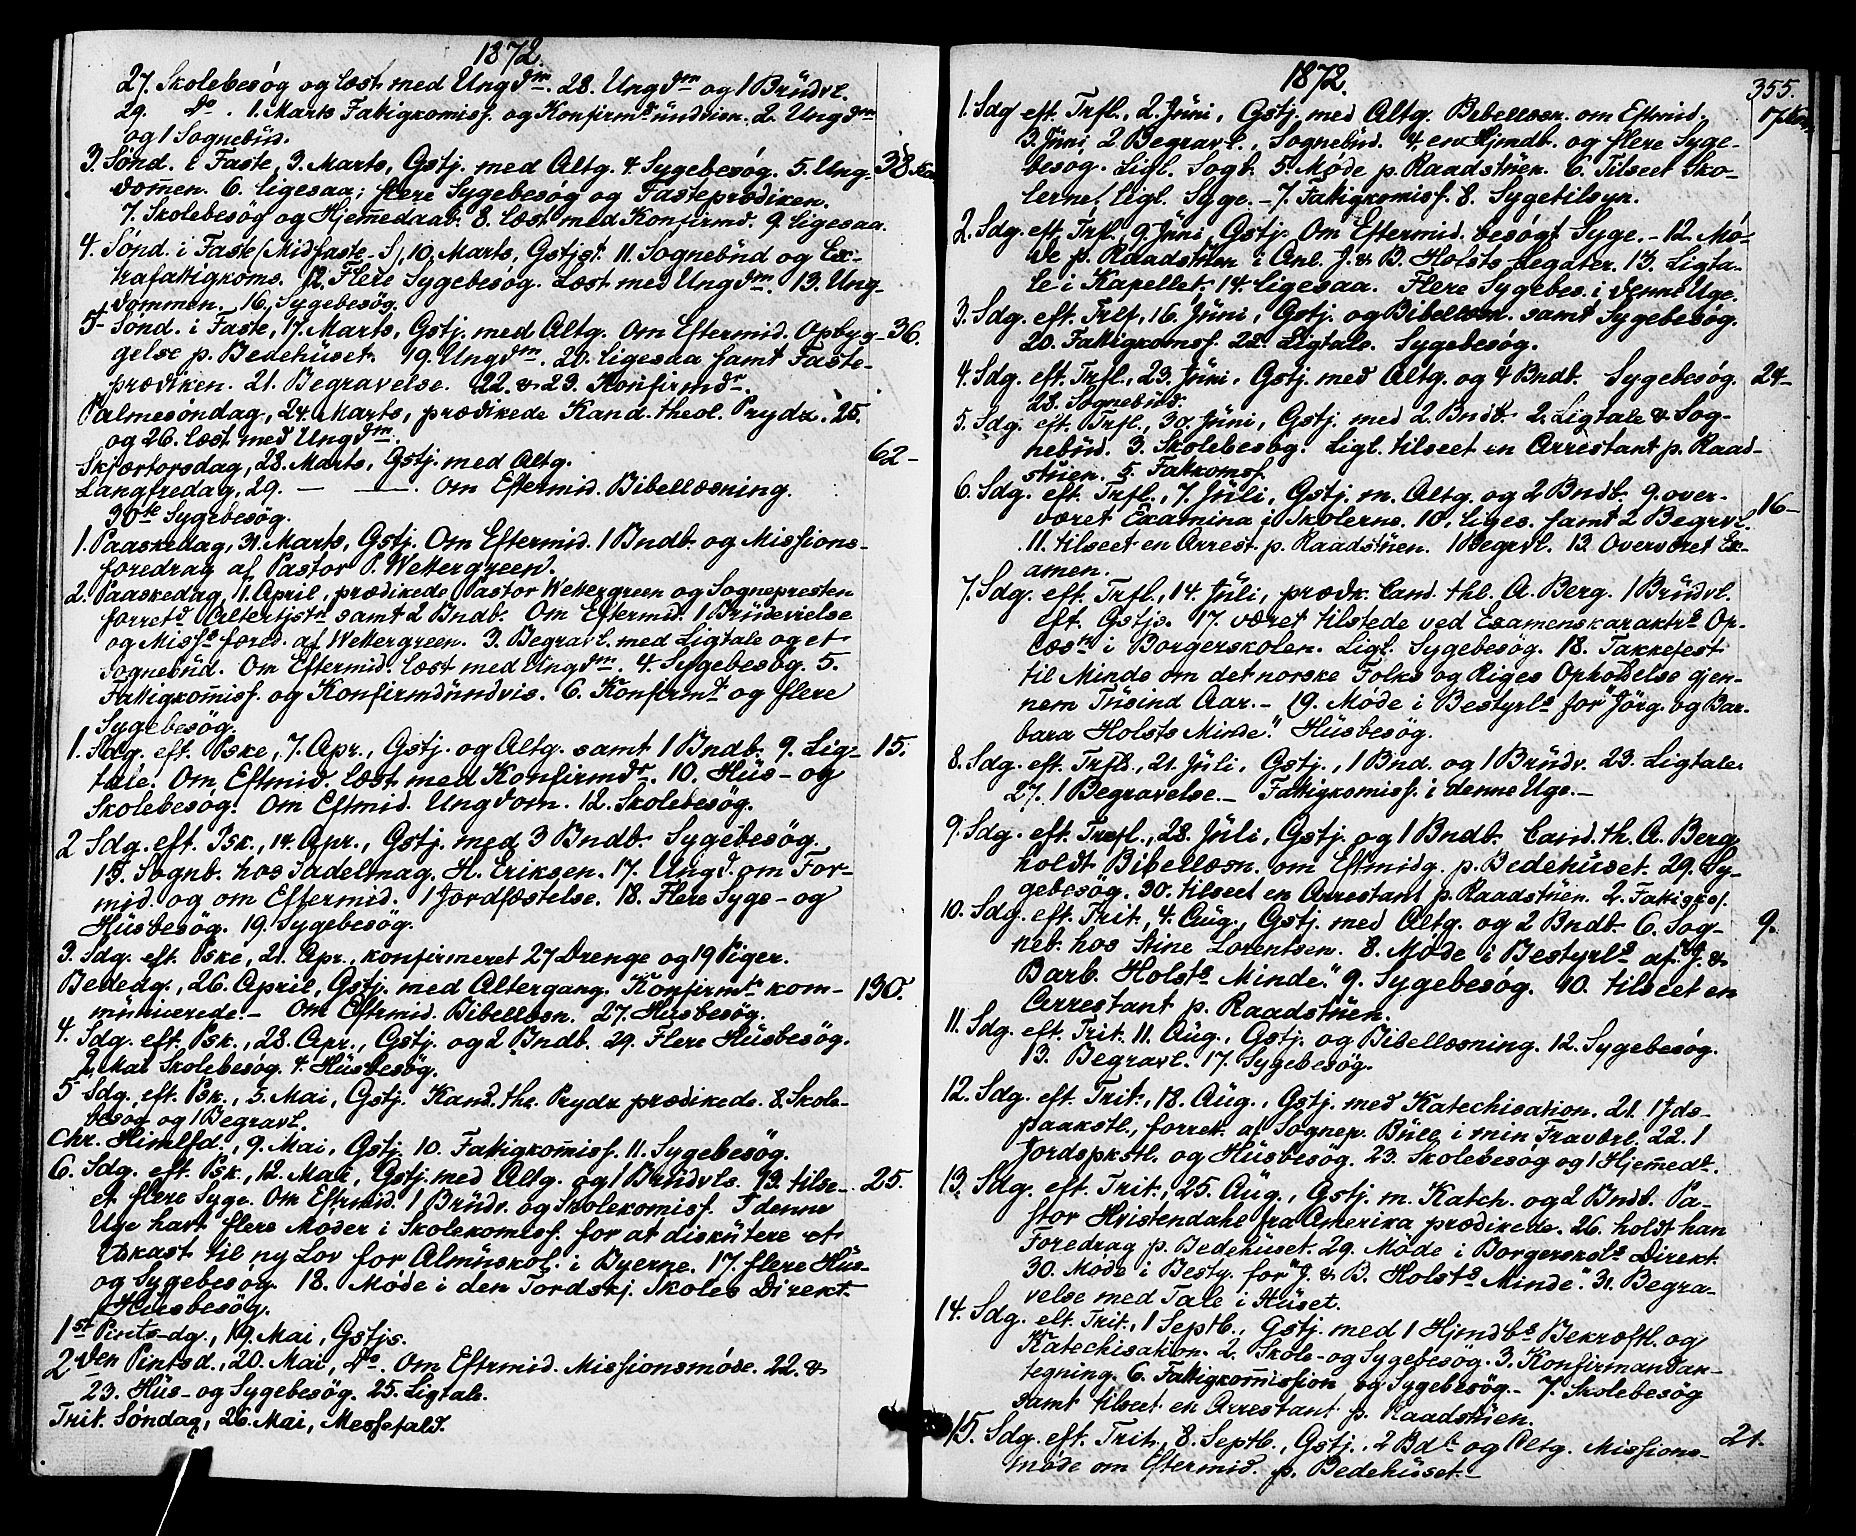 1872.
27. Skolebesøg og læst med Ungdm. 28. Ungdm og 1 Brüdvl.
29. Do. 1. Marts Fattigkomiss. og Konfirmdündvisn. 2. Ungdm
og 1 Sognebüd.
3. Sønd. i Faste, 3. Marts, Gstj. med Altg. 4. Sygebesøg. 5. Ung- 38
domen. 6. Ligesaa; flere Sygebesøg og Fasteprædiken.
7. Skolebesøg og Hjemedaab. 8. læst med Konfirmd. 9. ligesaa.
4. Sønd. i Faste (Midfaste-S), 10. Marts, Gstjst. 11. Sognebüd og Ex-
trafattigkoms. 12. Flere Sygebesøg. Læst med Ungdm. 13. Ung-
dommen. 16. Sygebesøg.
5. Sønd. i Faste, 17. Marts, Gstj. med Altg. Om Eftermid. Opbyg- 36.
gelse p. Bedehüset. 19. Ungdm. 20. ligesaa samt Faste-
prædiken. 21. Begravelse. 22. & 23. Konfirmdr.
Palmesøndag, 24. Marts, prædikede Kand. theol. Prydz. 25.
og 26. læst med Ungdm.
Skjærtorsdag, 28. Marts, Gstj. med Altg. 62-
Langfredag, 29. — —. Om Eftermid. Bibellæsning.
30te Sygebesøg.
1. Paaskedag, 31. Marts, Gstj. Om Eftermid. 1 Bndb. og Missions-
foredrag af Pastor P. Wettergreen.
2. Paaskedag, 1. April, prædikede Pastor Wettergreen og Sognepresten
forretd Altertjstn samt 2 Bndb. Om Eftermid. 1 Brüdevielse
og Misss fored. af Wettergreen. 3. Begravl. med Ligtale og et
Sognebüd. Om Eftermid. læst med Ungdm. 4. Sygebesøg. 5.
Fattigkomiss. og Konfirmdündvis. 6. Konfirmt og flere
Sygebesøg.
1. Sdg. eft. Pske, 7. Apr., Gstj. og Altg. samt 1 Bndb. 9. Lig- 15.
tale. Om Eftmid. læst med Konfirmdr. 10. Hüs- og
Skolebesøg. Om Eftmid. Ungdom. 12. Skolebesøg.
2 Sdg. eft. Psk., 14. Apr., Gstj. med 3 Bndb. Sygebesøg
15. Sognb. hos Sadelmag. H. Eriksen. 17. Ungd. om For-
mid. og om Eftermid. 1 Jordfæstelse. 18. Flere Syge- og
Hüsbesøg. 19. Sygebesøg.
3. Sdg. eft. Pske, 21. Apr., konfirmeret 27 Drenge og 19 Piger.
Bededg., 26. April, Gstj. med Altergang. Konfirmte kom- 130.
münicerede. – Om Eftmid. Bibellæsn. 27. Hüsbesøg.
4. Sdg. eft. Psk., 28. Apr., Gstj. og 2 Bndb. 29. Flere Hüsbesøg.
2. Mai Skolebesøg. 4. Hüsbesøg.
5 Sdg. eft. Psk., 5. Mai, Gstj. Kand. the. Prydz prædikede. 8. Skole-
besøg og 1 Begravl.
Chr. Himlfd., 9. Mai, Gstj. 10. Fattigkomiss. 11. Sygebesøg.
6. Sdg. eft. Psk., 12. Mai, Gstj. med Altg. og 1 Brüdvls. 13. tilse- 25.
et flere Syge. Om Eftrmid. 1 Brüdv. og Skolekomiss. I denne
Uge havt flere Møder i Skolekomiss. for at diskütere et
Udkast til ny Lov for Almüskol. i Byerne. 17. flere Hüs-
og Sygebesøg. 18. Møde i den Tordskj. Skoles Direkt.
Hüsbesøg.
1st Pintsdg., 19. Mai, Gstjs.
2den Pintsd., 20. Mai, Do. Om Eftrmid. Missionsmøde. 22. &
23. Hüs- og Sygebesøg. 25. Ligtale.
Trit. Søndag, 26. Mai, Messefald.
1872.
355.
1. Sdg eft. Trfl., 2. Jüni, Gstj. med Altg. Bibellæsn. om Eftmid.
3. Jüni, 2 Begravl., Sognebüd. 4. en Hjmdb. og flere Syge-
besøg. Ligl. Sogb. 5. Møde p. Raadstüen. 6. Tilseet Sko-
lerne. Ligl. Syge. – 7. Fattigkomiss. 8. Sygetilsyn.
2. Sdg. eft. Trfl., 9. Jüni, Gstj. Om Eftermid. besøgt Syge. – 12. Mø-
de p. Raadstüen i Anl. J. & B. Holsts Legater. 13. Ligta-
le i Kapellet. 14. ligesaa. Flere Sygebes. i denne Uge.
3. Sdg. eft. Trlt., 16. Jüni, Gstj. og Bibellæsn. samt Sygebesøg.
20. Fattigkomss. 22. Ligtale. Sygebesøg.
4. Sdg. eft. Trfl., 23. Jüni, Gstj. med Altg. og 4 Bndb. Sygebesøg. 24-
28. Sognebüd.
5. Sdg. eft. Trfl., 30. Jüni, Gstj. med 2 Bndb. 2. Ligtale & Sog-
nebüd. 3. Skolebesøg. Ligl. tilseet en Arrestant p. Raad-
stüen. 5. Fatkomss.
6. Sdg. eft. Trfl., 7. Jüli, Gstj. m. Altg. og 2 Bndb. 9. over- 16-
været Examina i Skolerne. 10. liges. samt 2 Begrvl.
11. tilseet en Arrest. p. Raadstüen. 1 Begrvl. 13. Overværet Ex-
amen.
7. Sdg. eft. Trfl., 14. Jüli, prædk. Cand. thl. A. Berg. 1 Brüdvl.
eft. Gstjs. 17. været tilstede ved Examenskaraktrs Op-
læsn i Borgerskolen. Ligl. Sygebesøg. 18. Takkefest
til Minde om det norske Folks og Riges Opholdelse gjen-
nem Tüsind Aar. – 19. Møde i Bestyrls for "Jörg. og Bar-
bara Holsts Minde". Hüsbesøg.
8. Sdg. eft. Trflb., 21. Jüli, Gstj., 1 Bnd. og 1 Brüdv. 23. Ligtale.
27. 1 Begravelse. – Fattigkomiss. i denne Uge. –
9. Sdg. eft. Trefl., 28. Jüli, Gstj. og 1 Bndb. Cand. th. A. Berg
holdt Bibellæsn. om Eftmidg. p. Bedehüset. 29. Sy-
gebesøg. 30. tilseet en Arrestant p. Raadstüen. 2. Fattigks.
10. Sdg. eft. Trit., 4. Aug., Gstj. med Altg. og 2 Bndb. 6. Sog- 9.
neb. hos Stine Lorentsen. 8. Møde i Bestyrls af "J. &
Barb. Holsts Minde." 9. Sygebesøg. 10. tilseet en
Arrestant p. Raadstüen.
11. Sdg. eft. Trit. 11. Aüg., Gstj. og Bibellæsning. 12. Sygebesøg.
13. Begravl. 17. Sygebesøg.
12. Sdg. eft. Trit., 18. Aüg., Gstj. med Katechisation. 21. 1 Jds-
paakstl., forret. af Sognep. Büll i min Fraværl. 22. 1
Jordspkstl. og Hüsbesøg. 23. Skolebesøg og 1 Hjemedb.
13. Sdg. eft. Trit., 25. Aüg., Gstj. m. Katch. og 2 Bndb. Pa-
stor Hvistendahl fra Amerika prædikede. 26. holdt han
Foredrag p. Bedehüset. 29. Møde i Borgerskols Direkt.
30. Møde i Besty. for "J. & B. Holsts Minde". 31. Begra-
velse med Tale i Hüset.
14. Sdg. eft. Trit., 1 Septb., Gstj. med 1 Hjmdbs Bekræftl. og
Katechisation. 2. Skole- og Sygebesøg. 3. Konfirmandan-
tegning. 6. Fattigkommission og Sygebesøg. – 7. Skolebesøg
samt tilseet en Arrestant p. Raadstüen.
15. Sdg. eft. Trit., 8. Septb., Gstj., 2 Bdb og Altg. Missions- 21.
møde om Eftermid. p. Bedehüset. –